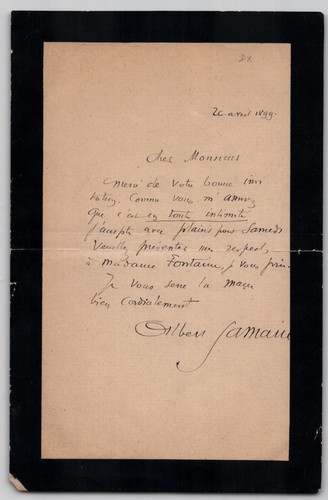 81
20 avril 1899.
Cher Monsieur
Merci de votre bonne invi
tation. Comme vous m'assurez
que c'est en toute intimité
j'accepte avec plaisir pour Samedi
Veuillez présenter mes respects
à Madame Fontaine, je vous prie.
Je vous serre la main
bien cordialement
Albert Samain